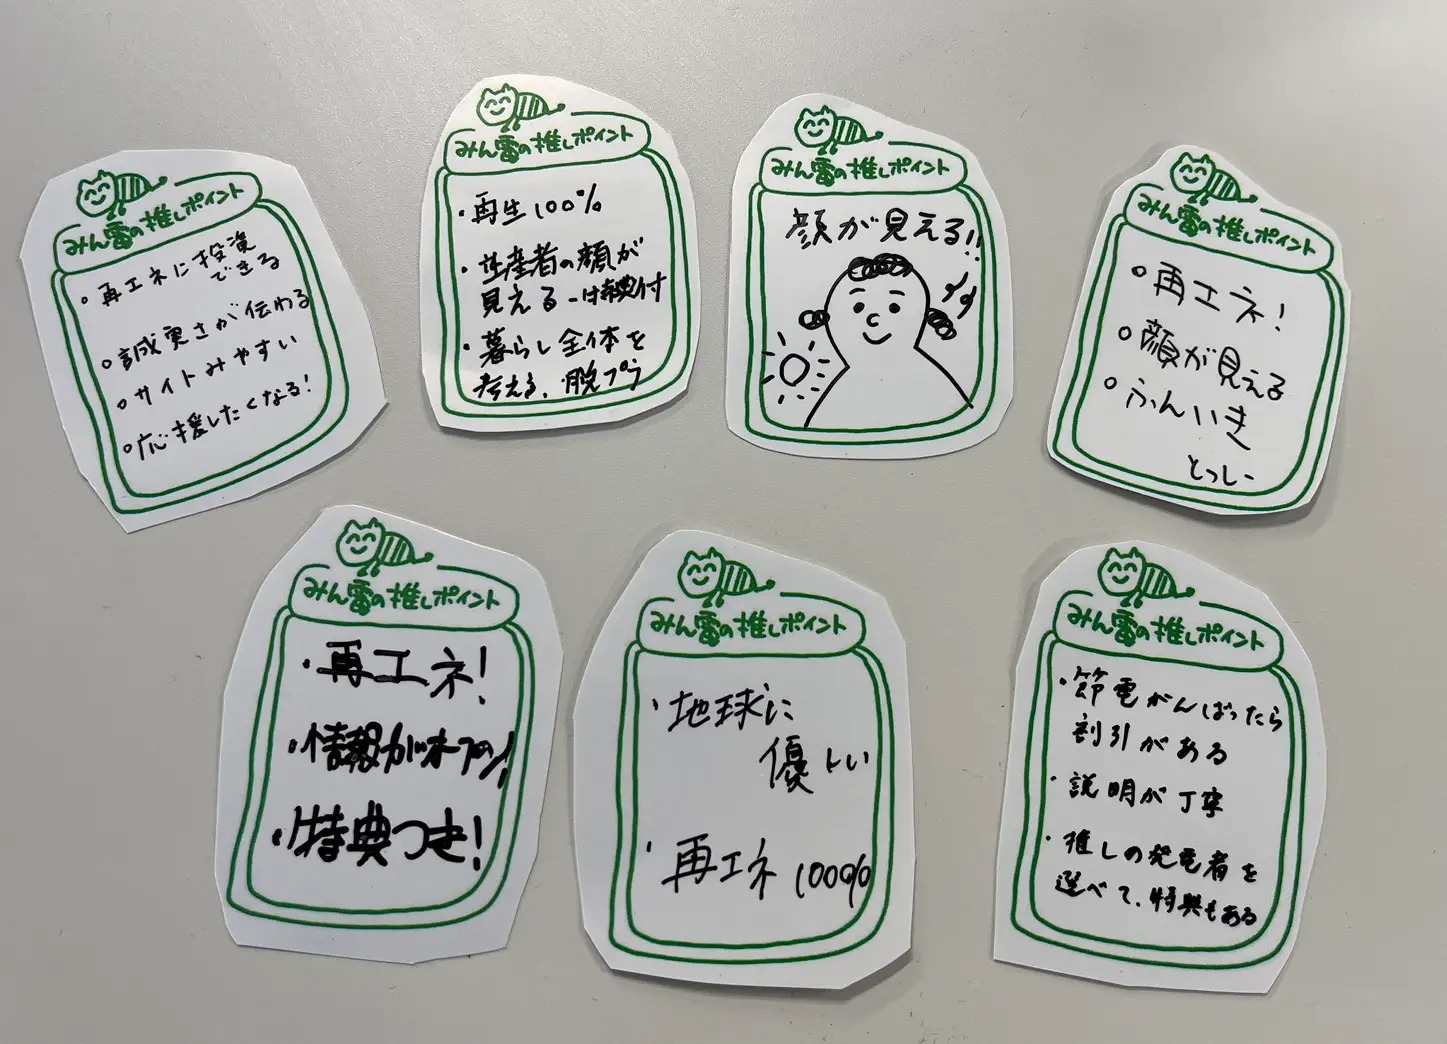 みん電の推しポイント
・再エネに投資
できる
・誠実さが伝わる
・サイトみやすい
・応援したくなる!
みん電の推しポイント
・再生100%
・生産者の顔が
見える
・暮らし全体を
考える、脱プラ
みん電の推しポイント
顔が見える!!
みん電の推しポイント
・再エネ!
・顔が見える
・ふんいき
とっしー
みん電の推しポイント
・再エネ!
・情報がオープン!
・特典つき!
みん電の推しポイント
・地球に
優しい
・再エネ100%
みん電の推しポイント
・節電がんばったら
割引がある
・説明が丁寧
・推しの発電者を
選べて、特典もある